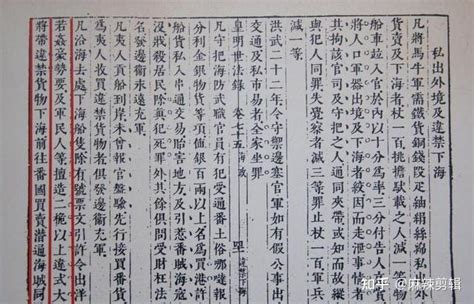 私出外境及違禁下海
凡將馬牛軍需鐵貨銅錢段疋紬絹絲綿私出外
貨賣及下海者杖一百挑擔馱載之人減一等物
船車並入官於內以十分為率三分付告人充賞
將人口軍器出境及下海者絞因而走泄事情者
其拘該官司及守把之人通同夾帶或知而故
與犯人同罪失覺察者減三等罪止杖一百軍兵
減一等
洪武二十二年令守禦邊塞官軍如有假公事出
交通及私市易者全家坐罪
皇明世法錄 卷七十五 海政 違禁下海
凡守把海防武職官員有犯受通番土俗哪噠報
分利金銀物貨等項值銀百兩以上名為買港許
船貨私入串通交易貽害地方及引惹番賊海寇
沒戕殺居民除真犯死罪外其餘俱問受財枉法
名發邊衛永遠充軍
凡夷人貢船到岸未曾報官盤驗先行接買番貨
為夷人收買違禁貨物者俱發邊衛充軍
凡沿海去處下海船隻除有號票文引許令出洋
若姦豪勢要及軍民人等擅造二桅以上違式大
將帶違禁貨物下海前往番國買賣潛通海賊同
知乎 @麻辣剪辑